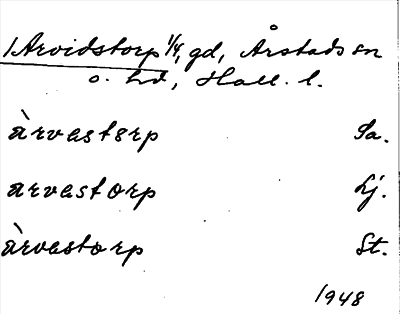 1 Arvidstorp 1/4, gd, Årstads sn
o. hd, Hall. l.
àrvastɛrp Sa.
arvastorp Lj.
àrvastorp St.
1948